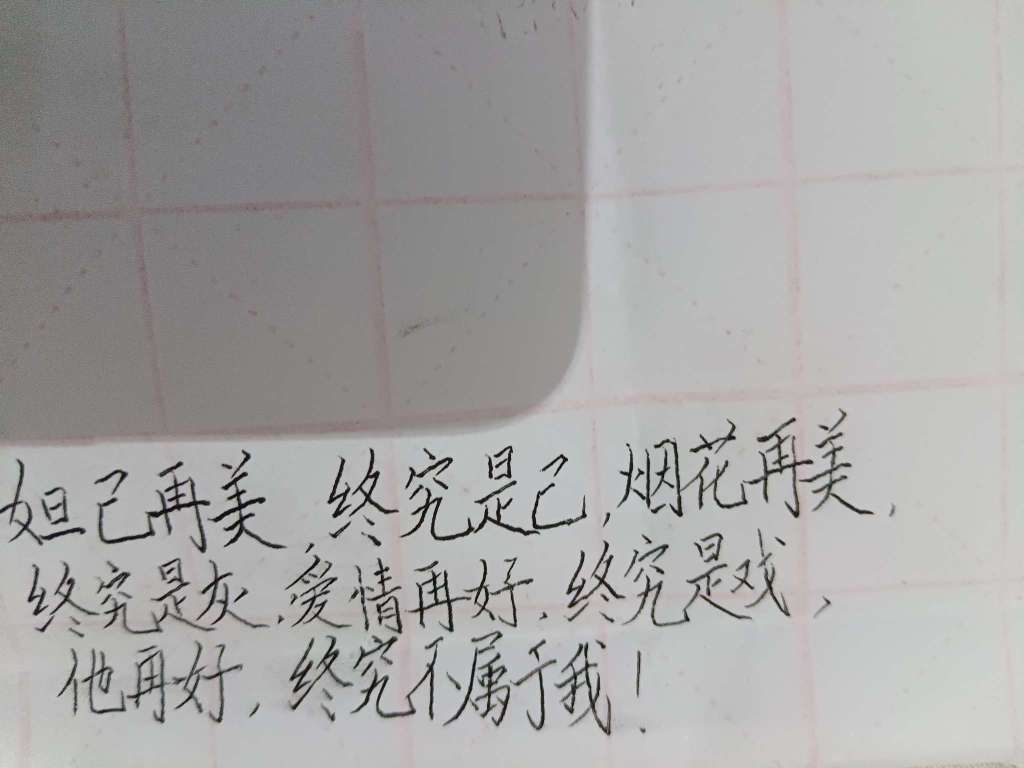 妲己再美,终究是己,烟花再美,
终究是灰,爱情再好,终究是戏,
他再好,终究不属于我!